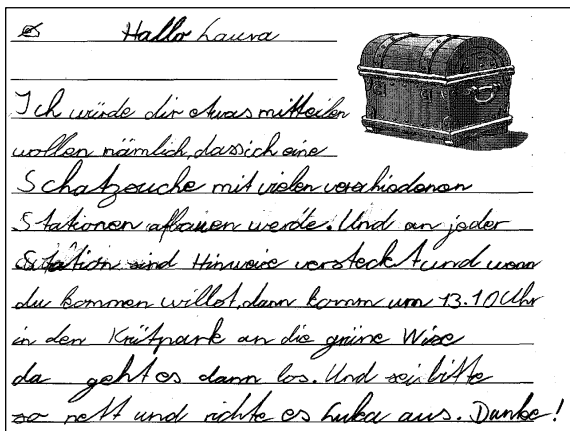 Hallo Laura
Ich würde dir etwas mitteilen
wollen nämlich, dass ich eine
Schatzsuche mit vielen verschiedenen
Stationen aufbauen werde. Und an jeder
Station sind Hinweise versteckt und wenn
du kommen willst, dann komm um 13.10 Uhr
in den Park an die grüne Wise
da geht es dann los. Und sei bitte
so nett und richte es Luka aus. Danke!